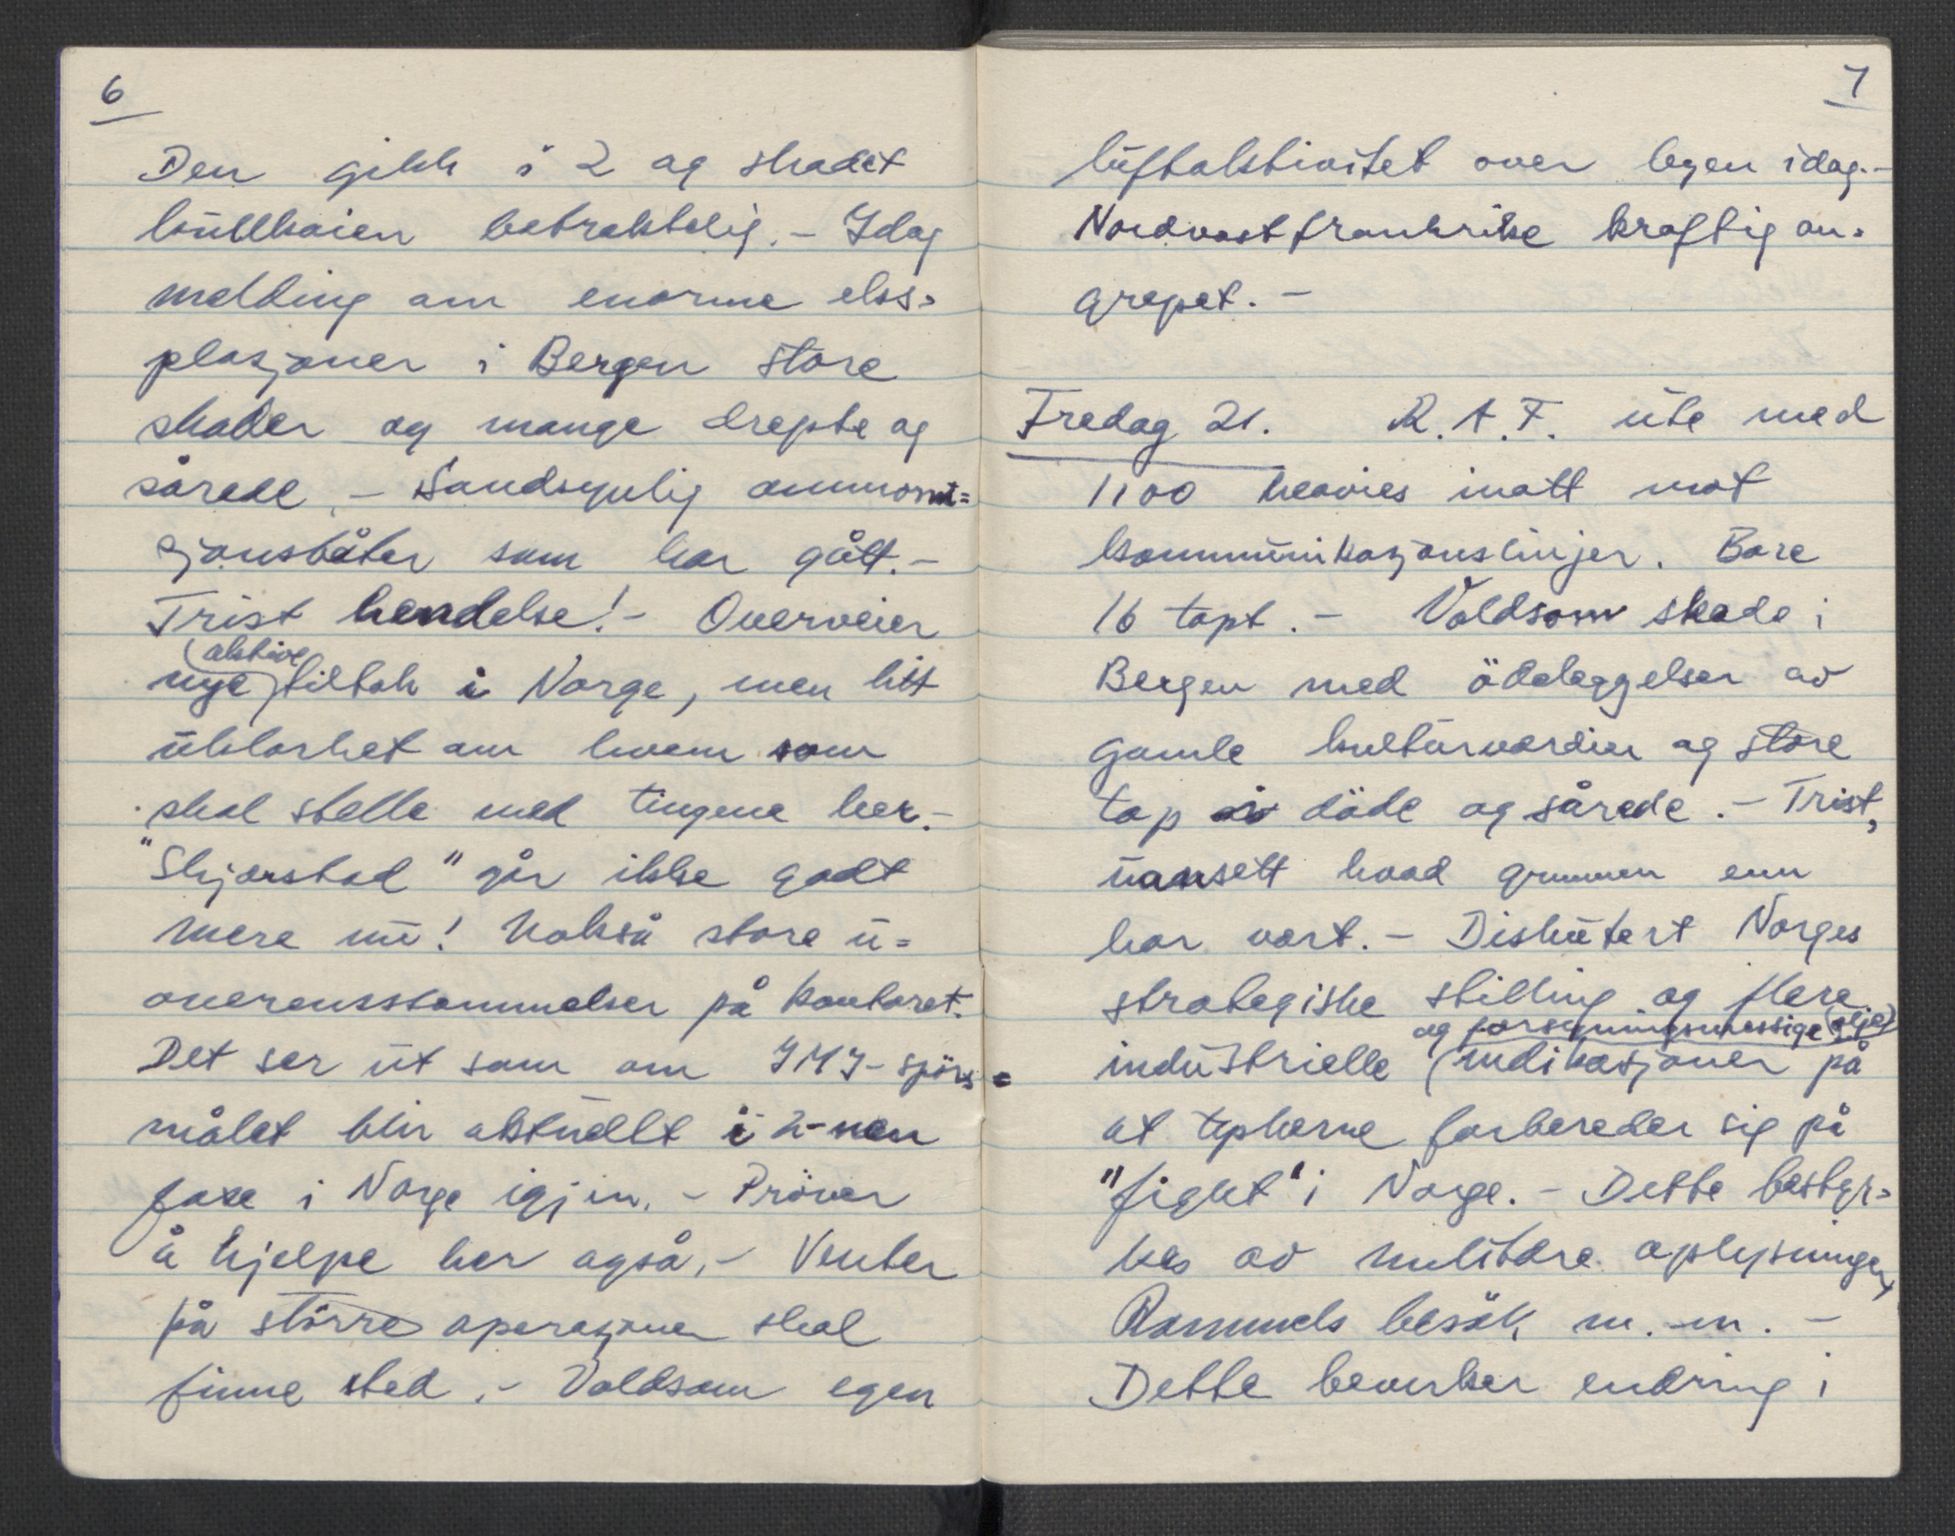 6
Den gikk i 2 og skadet
kullkaien betraktelig. - Idag
melding om enorme eks=
plosjoner i Bergen store
skader og mange drepte og
sårede. - Sandsynlig ammoni=
sjonsbåter som har gått. -
Trist hendelse! - Overveier
nye (aktive) tiltak i Norge, men litt
uklarhet om hvem som
skal stelle med tingene her. -
"Skjærstad" går ikke godt
mere nu! Nokså store u=
overensstemmelser på kontoret.
Det ser ut som om IMI-spörs=
målet blir aktuellt i 2-nen
fase i Norge igjen. - Pröver
å hjelpe her også. - Venter
på större operasjoner skal
finne sted. - Voldsom egen
7
luftaktivitet over byen idag. -
Nordvestfrankrike kraftig an=
grepet. -
Fredag 21. R.A.F. ute med
1100 heavies inatt mot
kommunikasjonslinjer. Bare
16 tapt. - Voldsom skade i
Bergen med ödeleggelser av
gamle kulturverdier og store
tap av döde og sårede. - Trist,
uansett hvad grunnen enn
har vært. - Diskutert Norges
strategiske stilling og flere
og forsyningsmessige (olje)
industrielle indikasjoner på
at tyskerne forbereder sig på
"fight" i Norge. - Dette bestyr=
kes av militære oplysninger,
Rommels besök m.m. -
Dette bevirker endring i